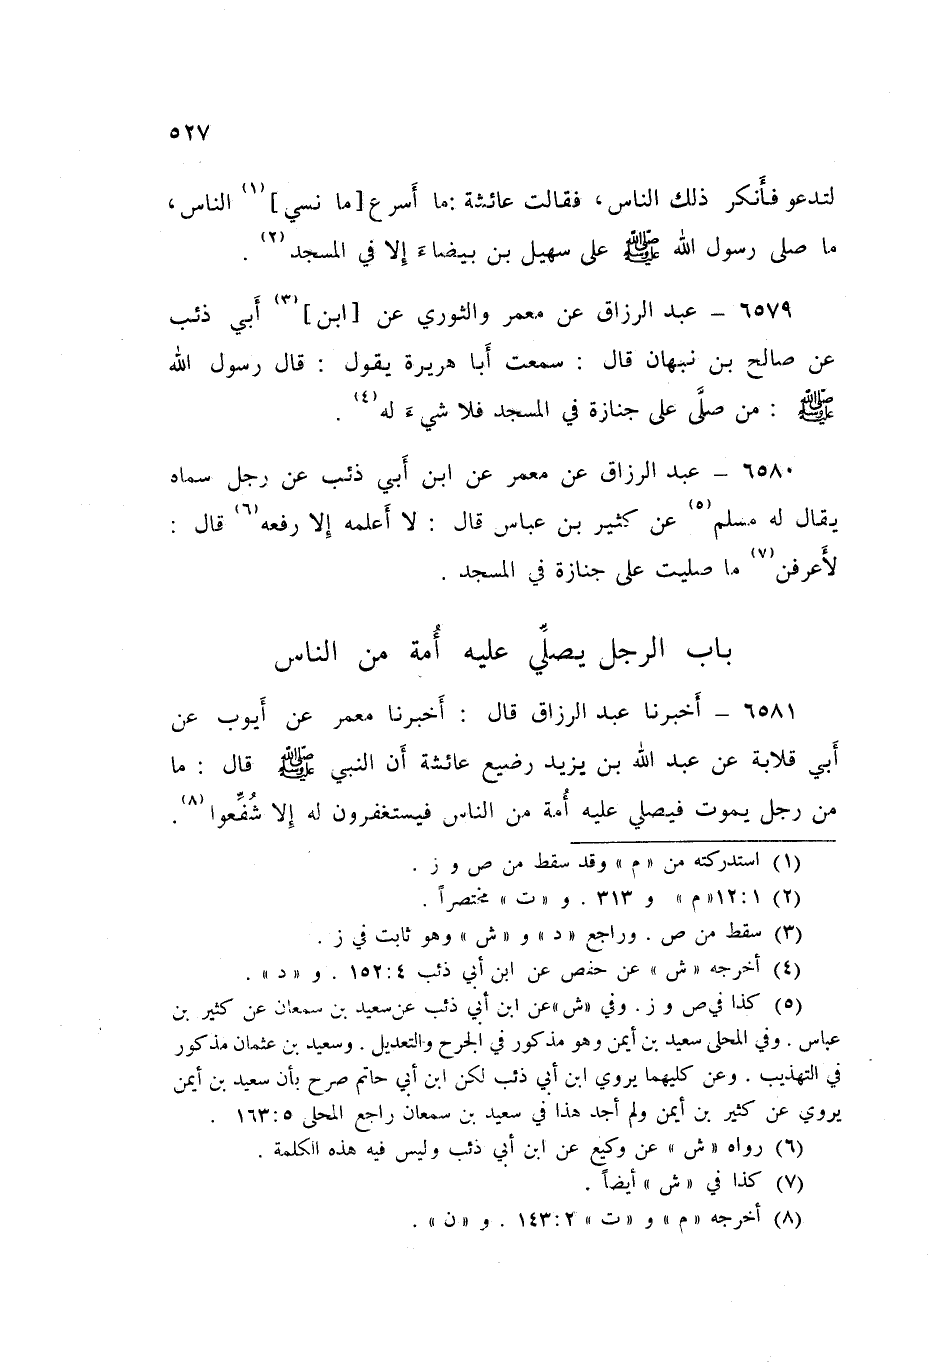 ٥٢٧
لتدعو فأَنكر ذلك الناس، فقالت عائشة :ما أَسرع [ما نسي](١) الناس،
ما صلى رسول الله ﷺ على سهيل بن بيضاءَ إلا في المسجد(٢).
٦٥٧٩ – عبد الرزاق عن معمر والثوري عن [ابن](٣) أَبي ذئب
عن صالح بن نبهان قال : سمعت أَبا هريرة يقول : قال رسول الله
ﷺ : من صلَّى على جنازة في المسجد فلا شيءَ له(٤) .
٦٥٨٠ – عبد الرزاق عن معمر عن ابن أَبي ذئب عن رجل سماه
يقال له مسلم(٥) عن كثير بن عباس قال : لا أَعلمه إلا رفعه(٦) قال :
لأَعرفن(٧) ما صليت على جنازة في المسجد .
باب الرجل يصلِّي عليه أُمة من الناس
٦٥٨١ – أَخبرنا عبد الرزاق قال : أَخبرنا معمر عن أَيوب عن
أَبي قلابة عن عبد الله بن يزيد رضيع عائشة أَن النبي ﷺ قال : ما
من رجل يموت فيصلي عليه أُمة من الناس فيستغفرون له إلا شُفِّعوا(٨).
(١) استدركته من « م » وقد سقط من ص و ز .
(٢) ١٢:١«م» و ٣١٣ . و « ت » مختصراً .
(٣) سقط من ص . وراجع « د » و « ش » وهو ثابت في ز .
(٤) أخرجه « ش » عن حفص عن ابن أبي ذئب ١٥٢:٤ . و « د » .
(٥) كذا في ص و ز . وفي «ش»عن ابن أبي ذئب عن سعيد بن سمعان عن كثير بن
عباس . وفي المحلى سعيد بن أيمن وهو مذكور في الجرح والتعديل . وسعيد بن عثمان مذكور
في التهذيب . وعن كليهما يروي ابن أبي ذئب لكن ابن أبي حاتم صرح بأن سعيد بن أيمن
يروي عن كثير بن أيمن ولم أجد هذا في سعيد بن سمعان راجع المحلى ١٦٣:٥ .
(٦) رواه « ش » عن وكيع عن ابن أبي ذئب وليس فيه هذه الكلمة .
(٧) كذا في « ش » أيضاً .
(٨) أخرجه « م » و « ت » ١٤٣:٢ . و « ن » .